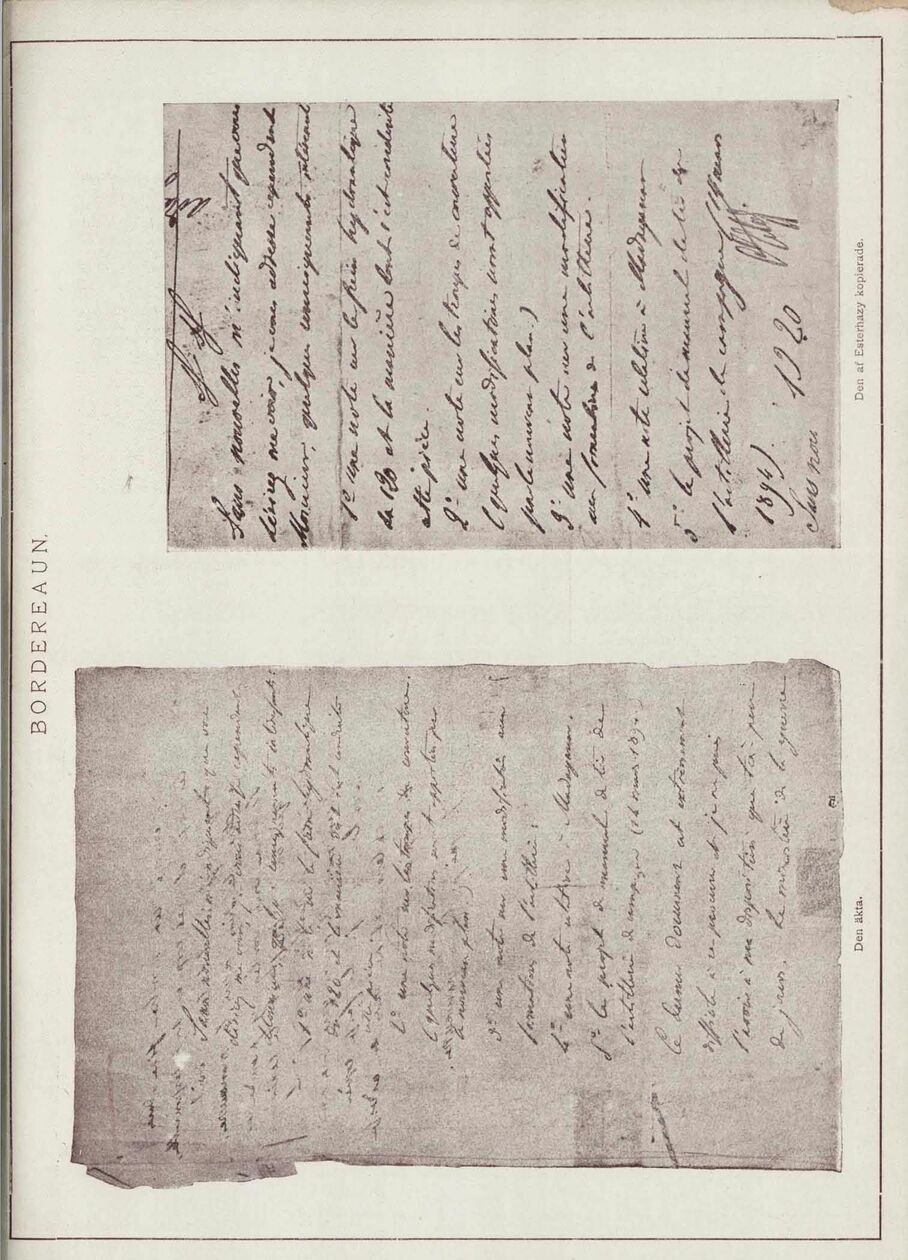 BORDEREAUN.
Sans nouvelles m'indiquant que vous
désirez me voir, je vous adresse cependant
Monsieur quelques renseignements intéressants:
1º une note sur le frein hydraulique
du 120 et la manière dont s'est conduite
cette pièce.
2º une note sur les troupes de couverture.
(quelques modifications seront apportées par
le nouveau plan)
3º une note sur une modification aux
formations de l'artillerie:
4º une note relative à Madagascar.
5º le projet de manuel de tir de
l'artillerie de campagne (14 mars 1894.)
Ce dernier document est extrêmement
difficile à se procurer et je ne puis
l'avoir à ma disposition que très peu
de jours. Le ministère de la guerre
Den äkta.
Sans nouvelles m'indiquant que vous
désirez me voir, je vous adresse cependant
Monsieur, quelques renseignements intéressants
1º une note sur le frein hydraulique
du 120 et la manière dont s'est conduite
cette pièce.
2º une note sur les troupes de couverture
(quelques modifications seront apportées
par le nouveau plan.)
3º une note sur une modification
aux formations de l'artillerie.
4º une note relative à Madagascar
5º le projet de manuel de tir de
l'artillerie de campagne (14 mars
1894)
1920
Den af Esterhazy kopierade.